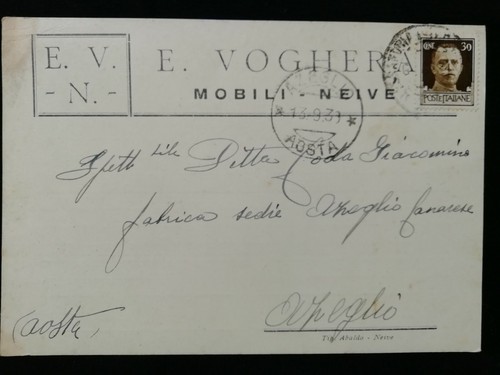 E. V.
- N. -
E. VOGHERA
MOBILI - NEIVE
CENT. 30
POSTE ITALIANE
13·9·39
AOSTA
Spett bile Ditta Coda Giacomino
fabrica sedie Azeglio Canavese
Azeglio
(Aosta)
Tip. Abaldo - Neive